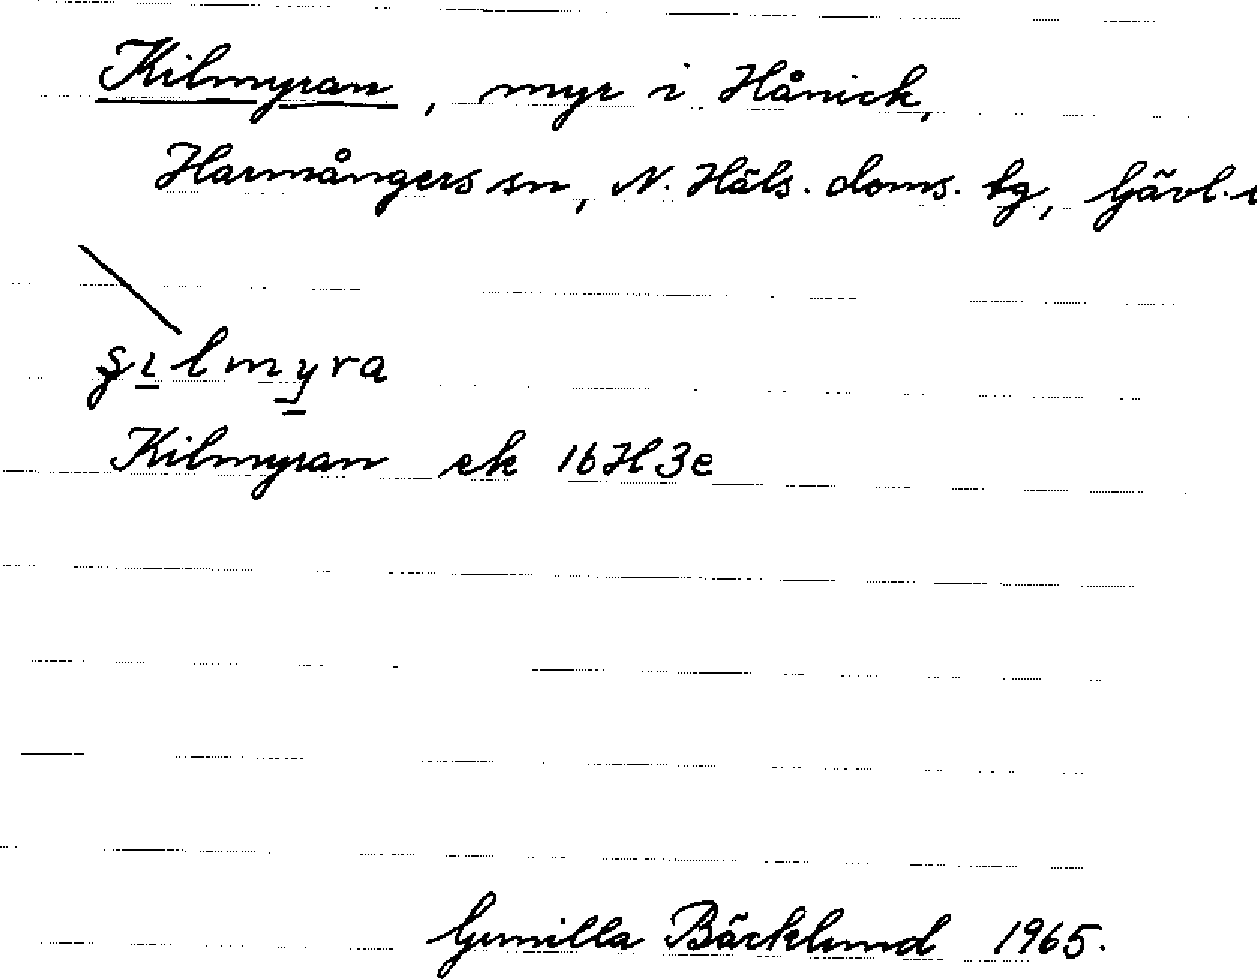 Kilmyran, myr i Hånick,
Harmångers sn, N. Häls. doms. tg, Gävl.
ʂɩlmyra
Kilmyran ek 16H3e
Gunilla Bäcklund 1965.